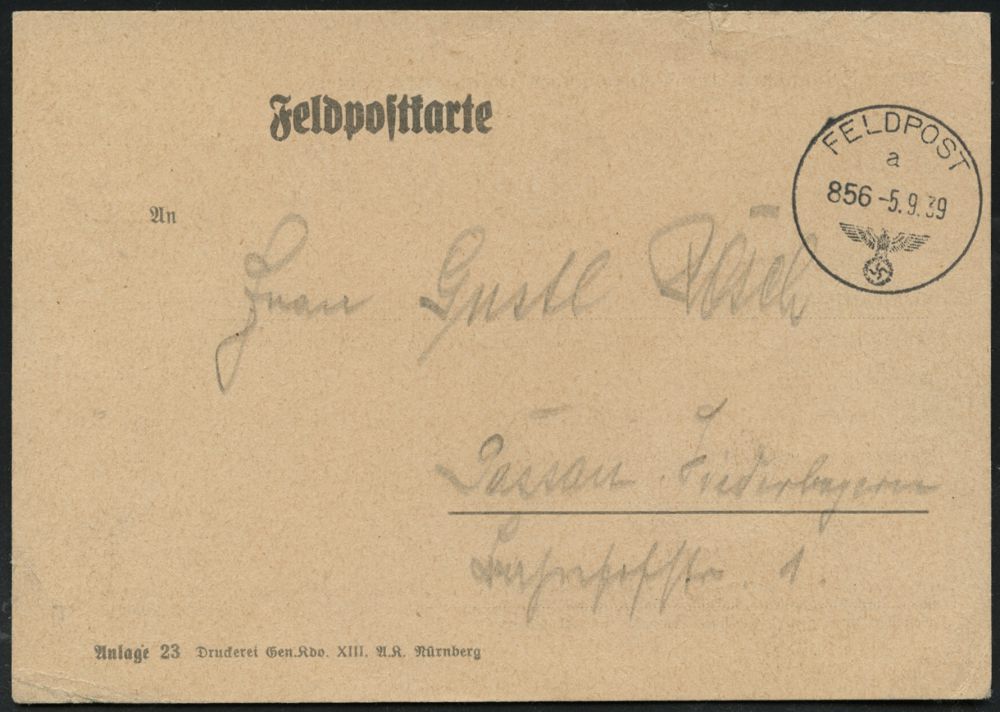 Feldpostkarte
FELDPOST
a
856 -5.9.39
An
Frau Gustl Resch
Passau Niederbayern
Bahnhofstr. 1.
Anlage 23 Druckerei Gen.Kdo. XIII. A.K. Nürnberg